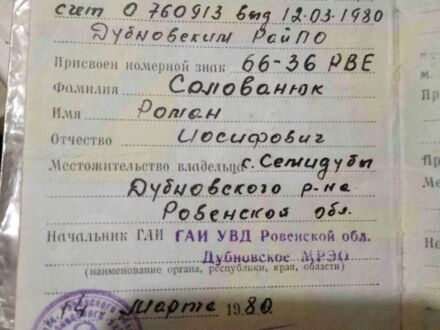 счет О 760913 выд 12.03.1980
Дубновским РайПО
Присвоен номерной знак 66-36 РВЕ
Фамилия Солованюк
Имя Роман
Отчество Иосифович
Местожительство владельца с. Семидубы
Дубновского р-на
Ровенской обл.
Начальник ГАИ ГАИ УВД Ровенской обл.
Дубновское МРЭО
(наименование органа, республики, края, области)
14 марта 1980.